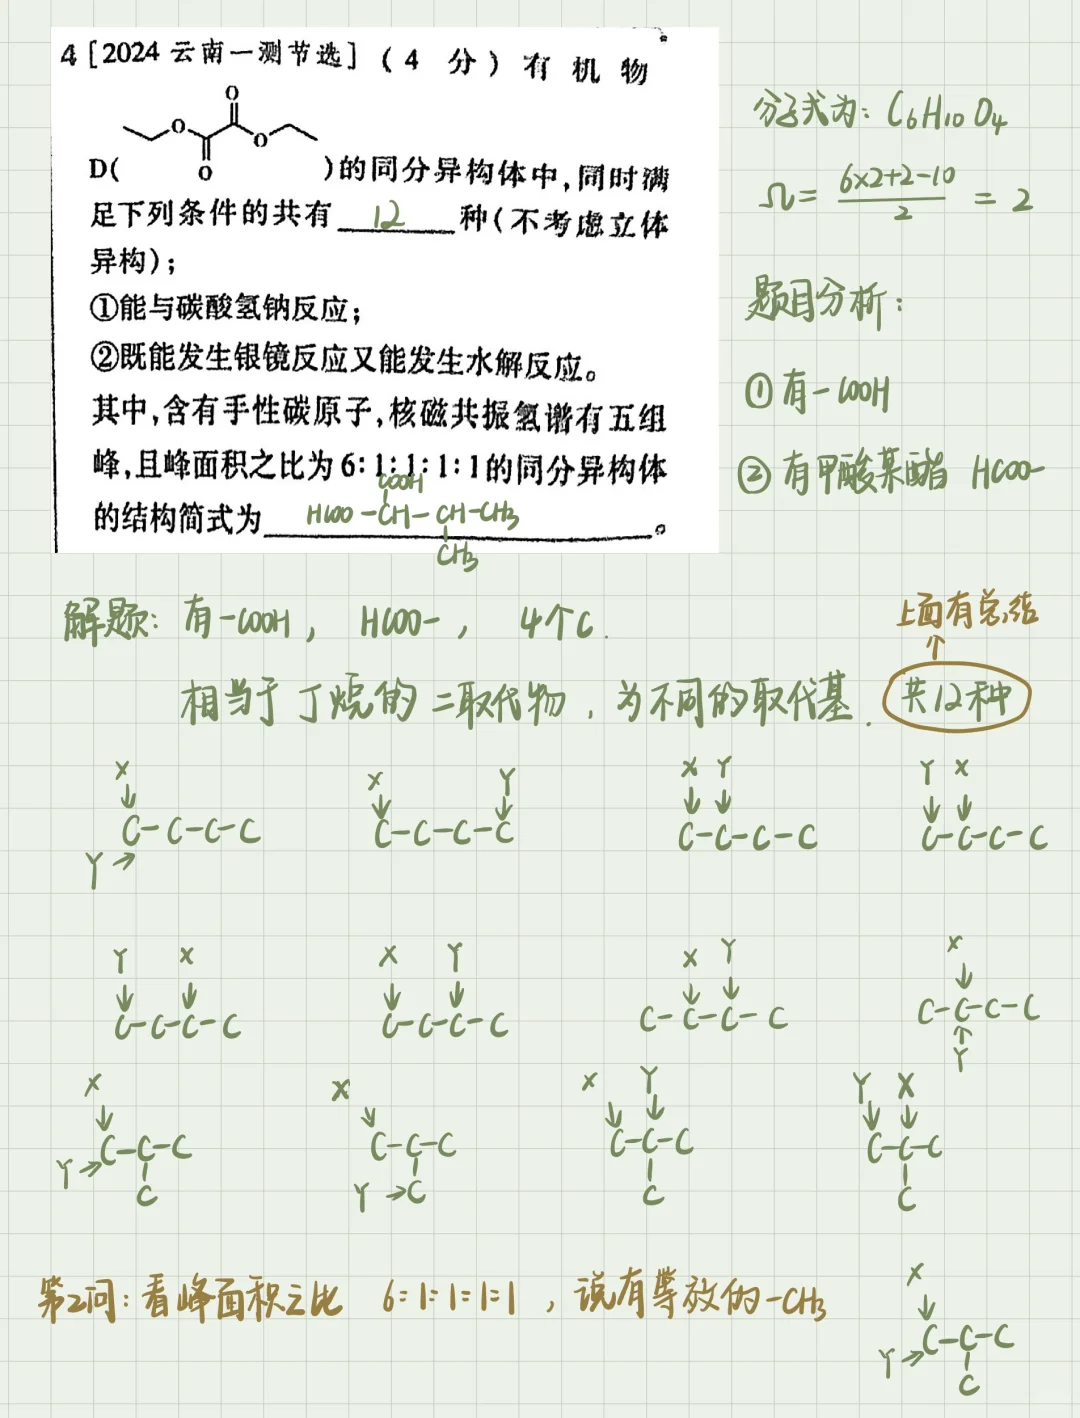 4 [2024 云南一测节选] (4 分) 有 机 物
D( O O O O )的同分异构体中,同时满
足下列条件的共有 12 种(不考虑立体
异构);
①能与碳酸氢钠反应;
②既能发生银镜反应又能发生水解反应。
其中,含有手性碳原子,核磁共振氢谱有五组
峰,且峰面积之比为 6:1:1:1:1的同分异构体
COOH
的结构简式为 HCOO-CH-CH-CH3 。
CH3
分子式为: C6H10O4
Ω= 6×2+2-10 / 2 = 2
题目分析:
① 有-COOH
② 有甲酸某酯 HCOO-
解题: 有-COOH, HCOO-, 4个C.
上面有总结
相当于丁烷的二取代物, 为不同的取代基. 共12种
X X Y X Y Y X
C-C-C-C C-C-C-C C-C-C-C C-C-C-C
Y
Y X X Y X Y X
C-C-C-C C-C-C-C C-C-C-C C-C-C-C
Y
X X X Y Y X
C-C-C C-C-C C-C-C C-C-C
Y C Y C C C
第2问: 看峰面积之比 6:1:1:1:1, 说有等效的-CH3
X
C-C-C
Y C